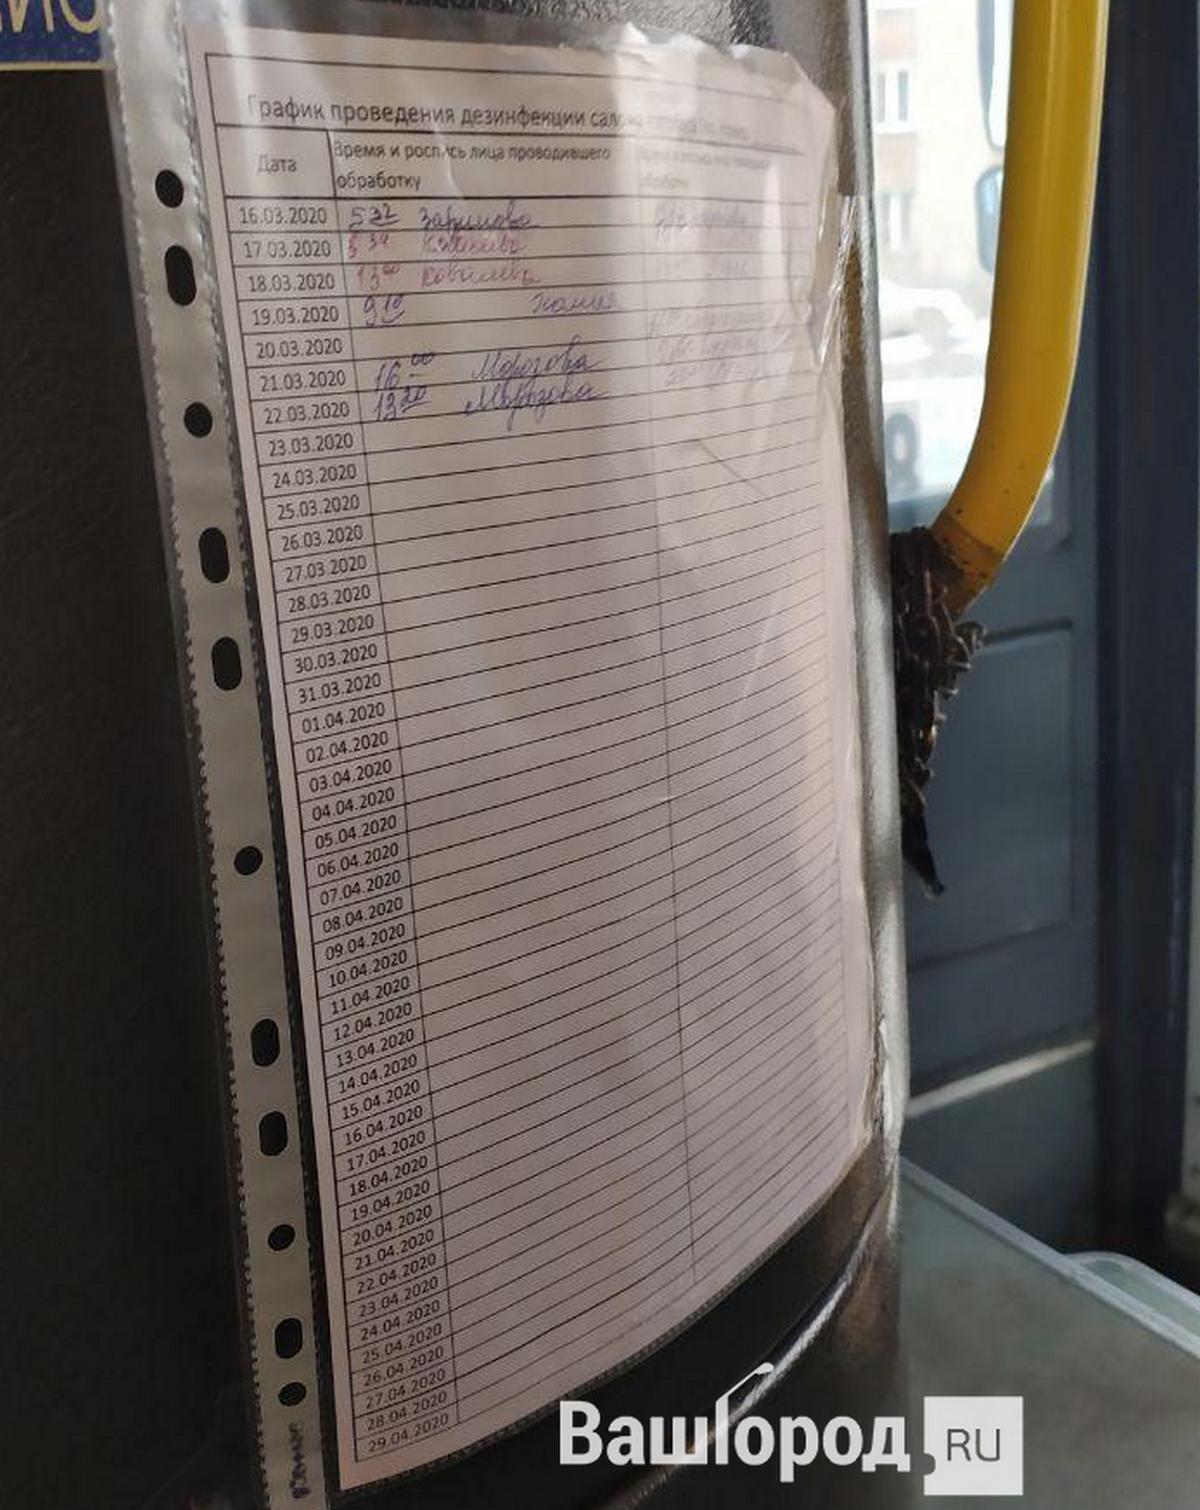 График проведения дезинфекции салона
Дата Время и роспись лица проводившего обработку
16.03.2020 5 32
17.03.2020 5 30
18.03.2020 13 00 Ковалева
19.03.2020 9 10
20.03.2020
21.03.2020 16 00 Морозова
22.03.2020 13 20 Морозова
23.03.2020
24.03.2020
25.03.2020
26.03.2020
27.03.2020
28.03.2020
29.03.2020
30.03.2020
31.03.2020
01.04.2020
02.04.2020
03.04.2020
04.04.2020
05.04.2020
06.04.2020
07.04.2020
08.04.2020
09.04.2020
10.04.2020
11.04.2020
12.04.2020
13.04.2020
14.04.2020
15.04.2020
16.04.2020
17.04.2020
18.04.2020
19.04.2020
20.04.2020
21.04.2020
22.04.2020
23.04.2020
24.04.2020
25.04.2020
26.04.2020
27.04.2020
28.04.2020
29.04.2020
ВашГород.RU